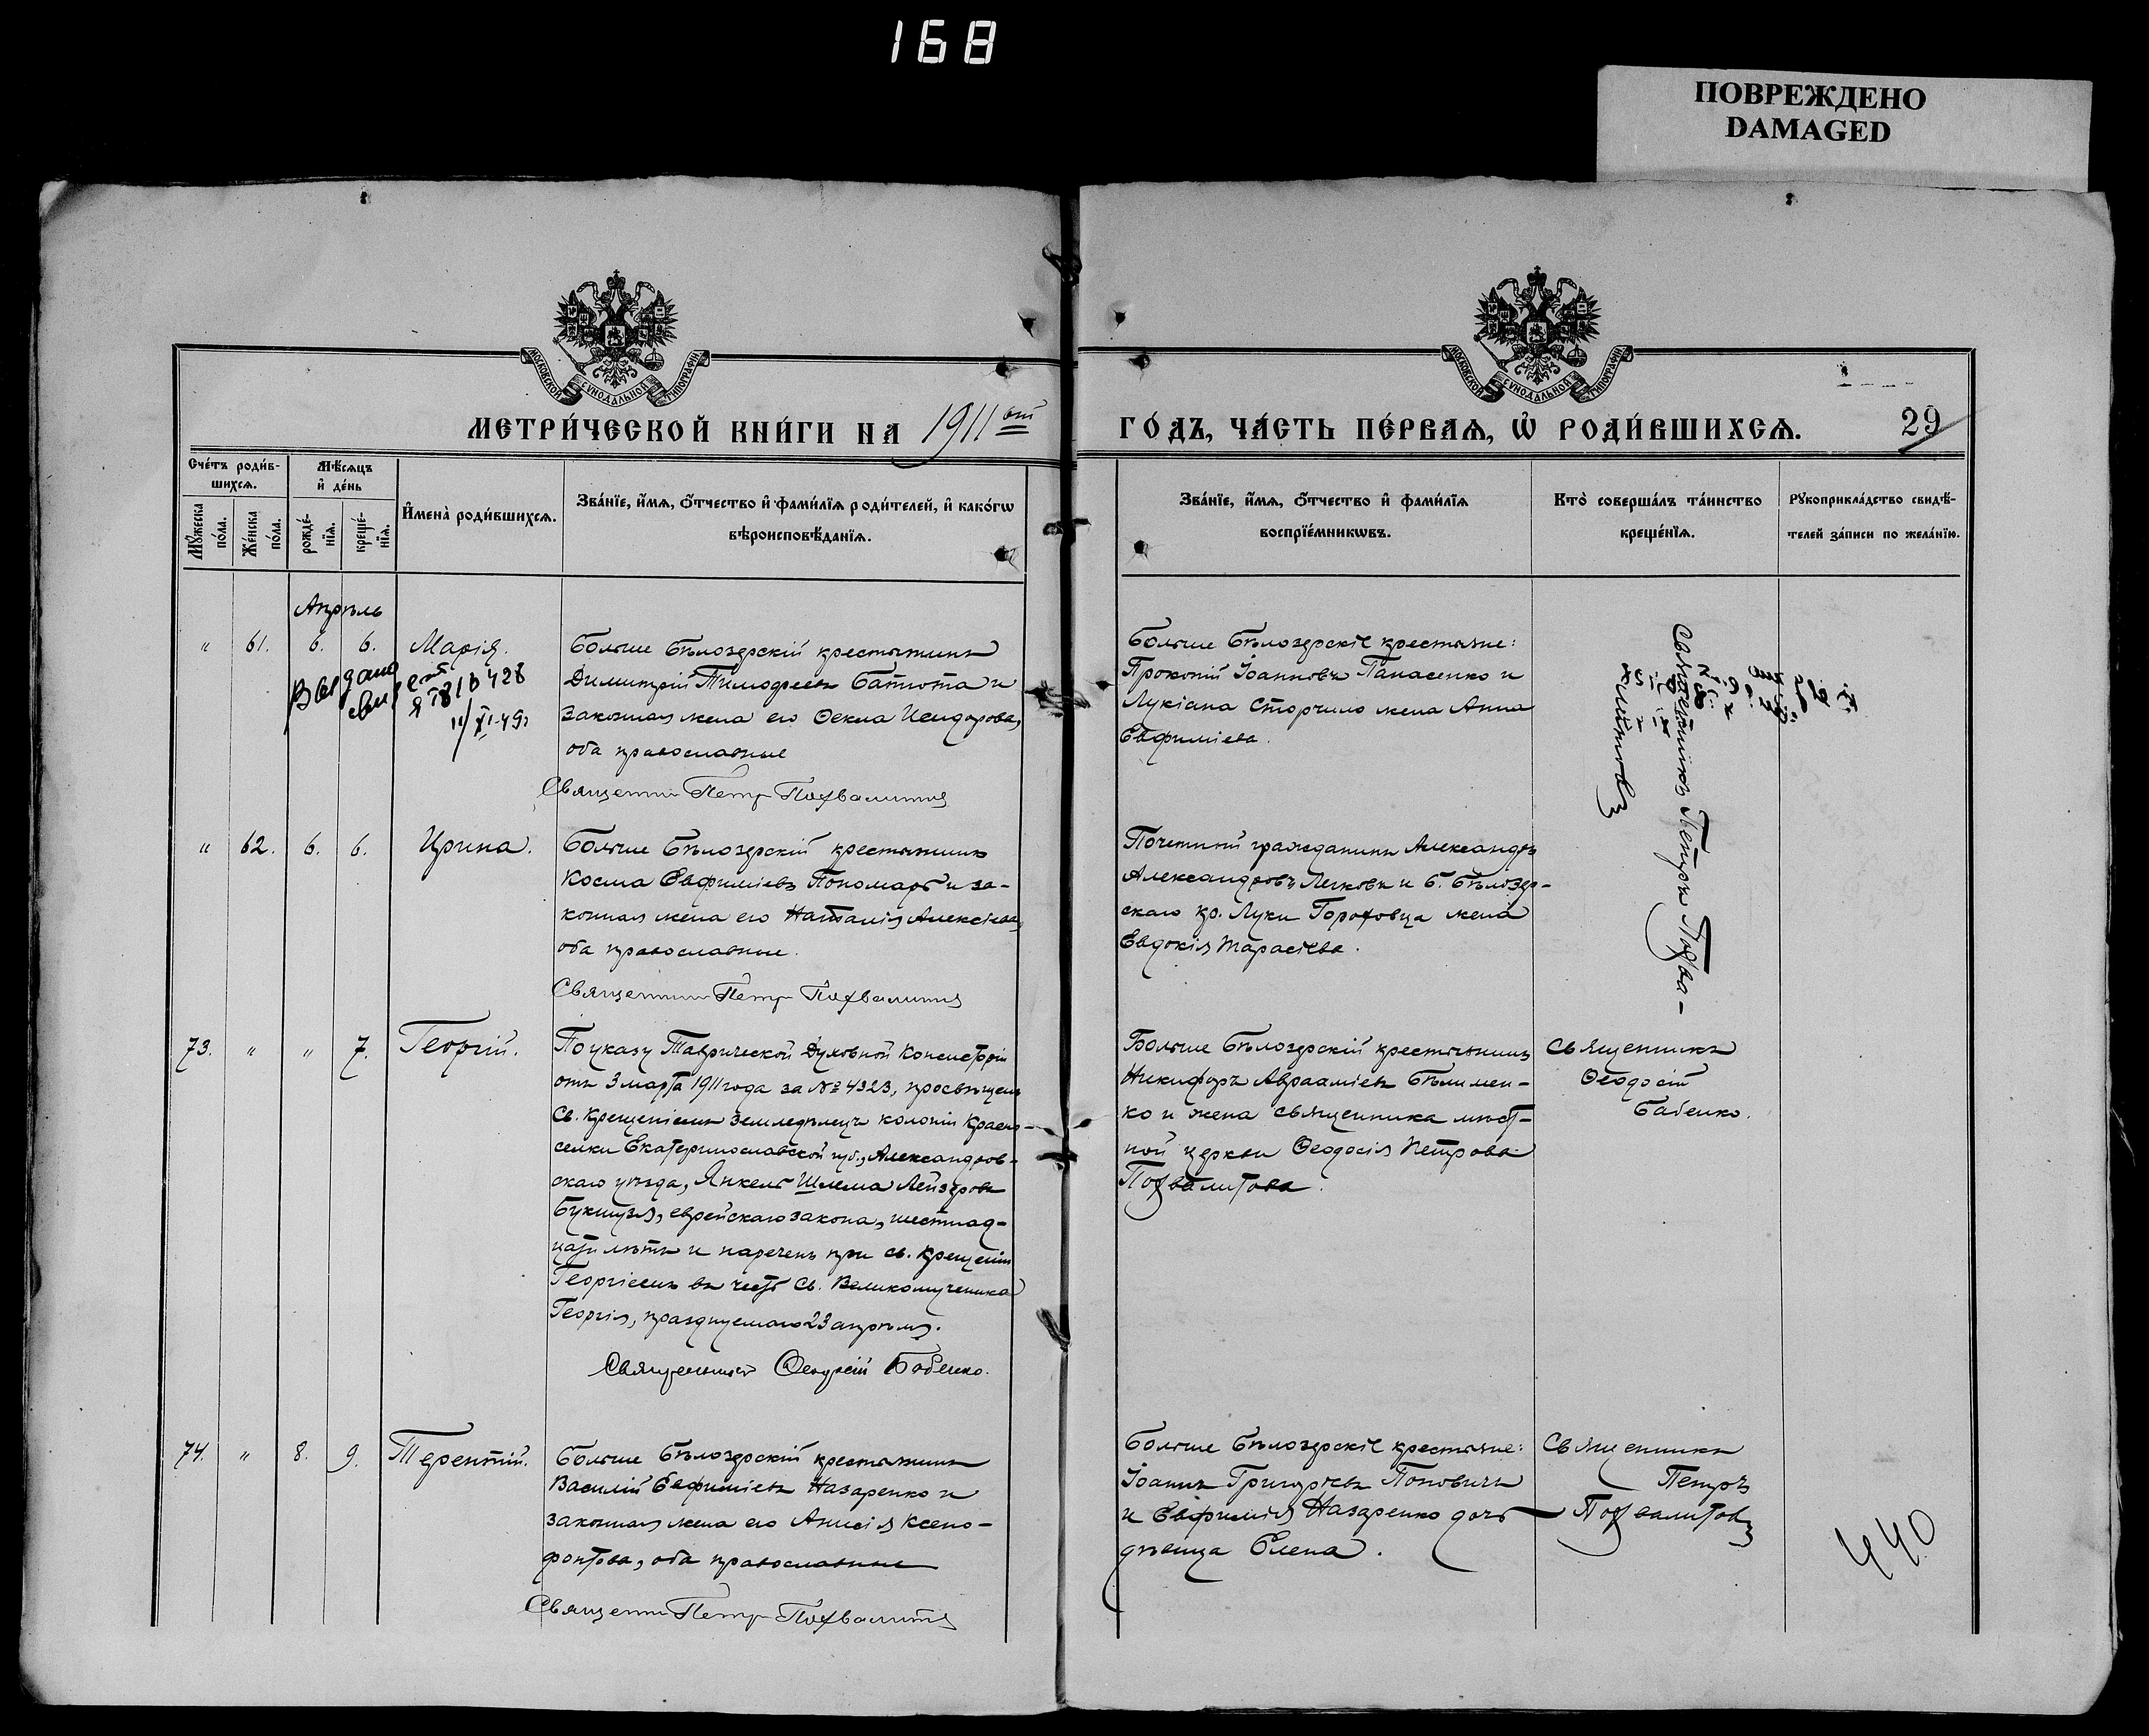 168
ПОВРЕЖДЕНО
DAMAGED
МОСКОВСКОЙ СѴНОДАЛЬНОЙ ТИПОГРАФІИ
МОСКОВСКОЙ СѴНОДАЛЬНОЙ ТИПОГРАФІИ
МЕТРИ́ЧЕСКОЙ КНИ́ГИ НА 1911 ый
ГО́ДЪ, ЧА́СТЬ ПЕ́РВАѦ, Ѽ РОДИ́ВШИХСѦ.
29
Сче́тъ роди́в-
шихсѧ.
Мꙋ́жеска по́ла.
Же́нска по́ла.
Мѣ́сѧцъ
и҆ де́нь
рожде́-
нїѧ.
креще́-
нїѧ.
И҆мена̀ роди́вшихсѧ.
Зва́нїе, и҆́мѧ, ѻ҆́тчество и҆ фами́лїѧ роди́телей, и҆ како́гѡ
вѣроисповѣ́данїѧ.
Зва́нїе, и҆́мѧ, ѻ҆́тчество и҆ фами́лїѧ
воспрїе́мникѡвъ.
Кто̀ соверша́лъ та́инство
креще́нїѧ.
Рꙋкоприкла́дство свидѣ́-
телей за́писи по жела́нїю.
Апрѣль
" 61. 6. 6. Марія.
Выдано
свид
11/XI-49г
Больше Бѣлозерскій крестьянинъ
Димитрій Тимофеевъ Батюта и
законная жена его Ѳекла Исидорова,
оба православные
Священникъ Петръ Похвалитовъ
Больше Бѣлозерскіе крестьяне:
Прокопій Іоанновъ Панасенко и
Лукіана Сторчило жена Анна
Евфиміева.
Священникъ Петръ Похва-
литовъ
" 62. 6. 6. Ирина.
Больше Бѣлозерскій крестьянинъ
Косма Евфиміевъ Пономарь и за-
конная жена его Наталія Алексіева,
оба православные.
Священникъ Петръ Похвалитовъ
Почетный гражданинъ Александръ
Александровъ Легковъ и Б. Бѣлозер-
скаго кр. Луки Гороховца жена
Евдокія Тарасіева.
73. " " 7. Георгій.
По указу Таврической Духовной Консисторіи
отъ 3 марта 1911 года за № 4323, просвѣщенъ
Св. Крещеніемъ земледѣлецъ колоніи Красно-
селки Екатеринославской губ., Александров-
скаго уѣзда, Янкель Шлема Лейзеровъ
еврейскаго закона, шестнад-
цати лѣтъ и нареченъ при св. крещеніи
Георгіемъ въ честь Св. Великомученика
Георгія, празднуемаго 23 апрѣля.
Священникъ Ѳеодосій Бабенко.
Больше Бѣлозерскій крестьянинъ
Никифоръ Аврааміевъ Бѣлимен-
ко и жена священника мѣст-
ной церкви Ѳеодосія Петрова
Похвалитова.
Священникъ
Ѳеодосій
Бабенко.
74. " 8. 9. Терентій.
Больше Бѣлозерскій крестьянинъ
Василій Евфиміевъ Назаренко и
законная жена его Анисія Ксено-
фонтова, оба православные
Священникъ Петръ Похвалитовъ
Больше Бѣлозерскіе крестьяне:
Іоаннъ Григорьевъ Поповичъ
и Евфимія Назаренко дочь
дѣвица Елена.
Священникъ
Петръ
Похвалитовъ
440